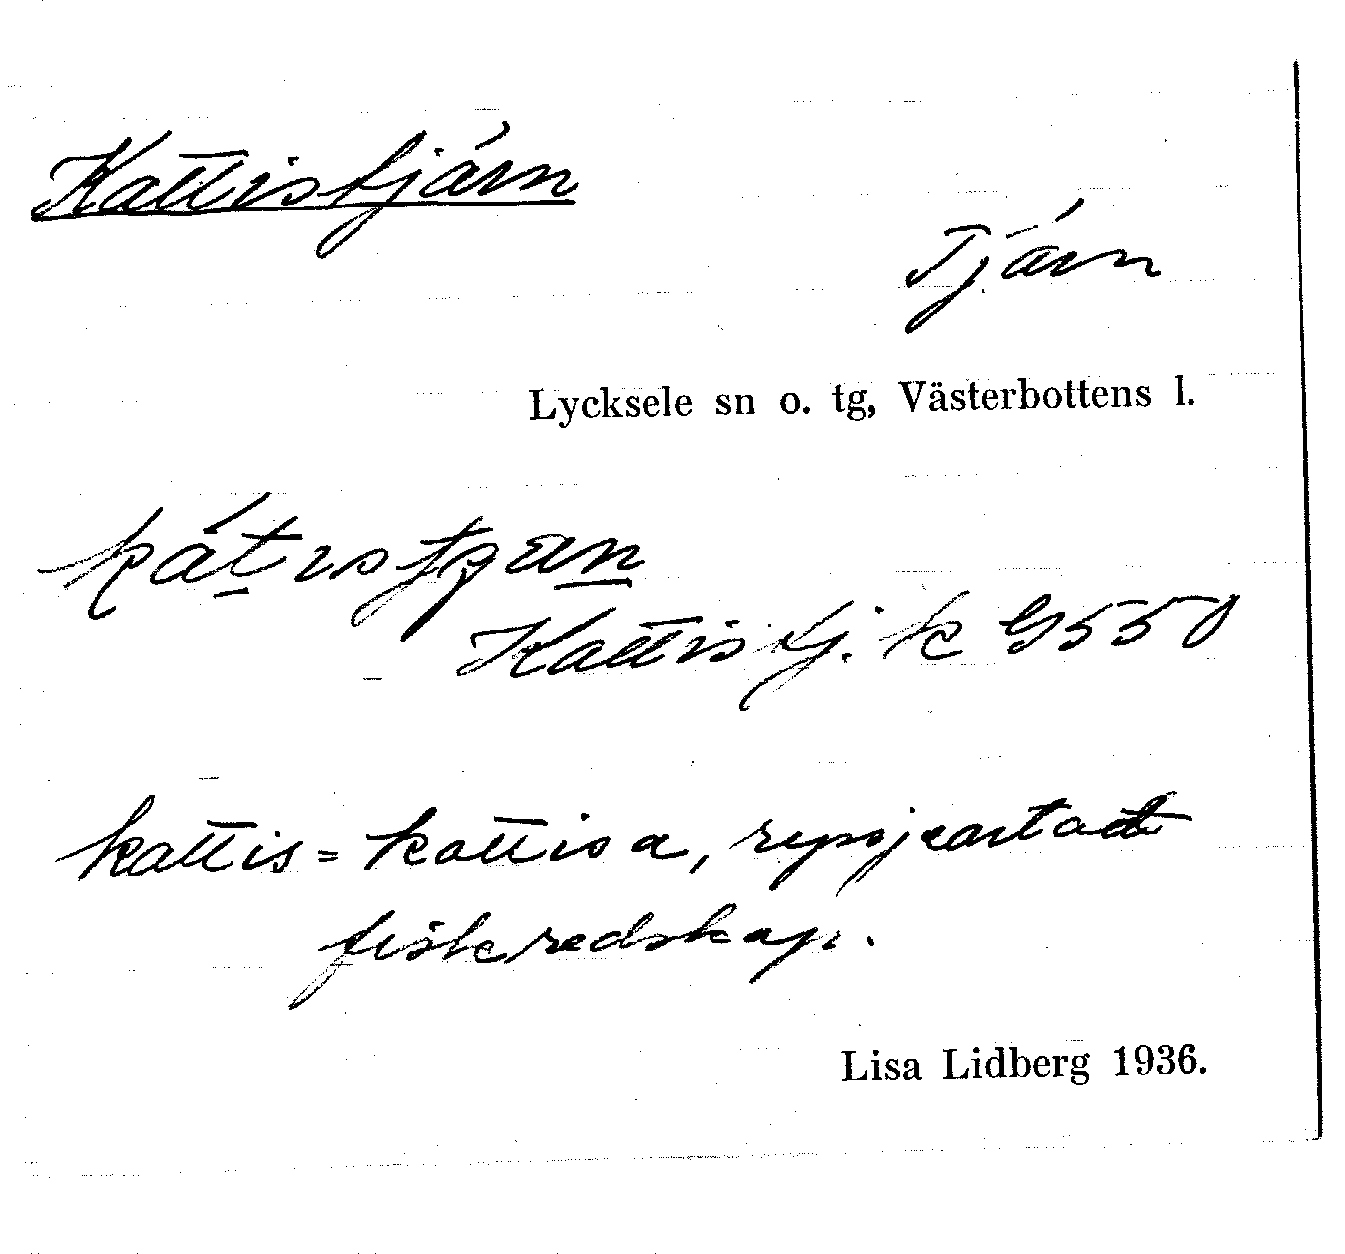 Kattistjärn
Tjärn
Lycksele sn o. tg, Västerbottens l.
Kattistj. k G550
kattis = kattisa, ryssjeartat
fiskredskap.
Lisa Lidberg 1936.